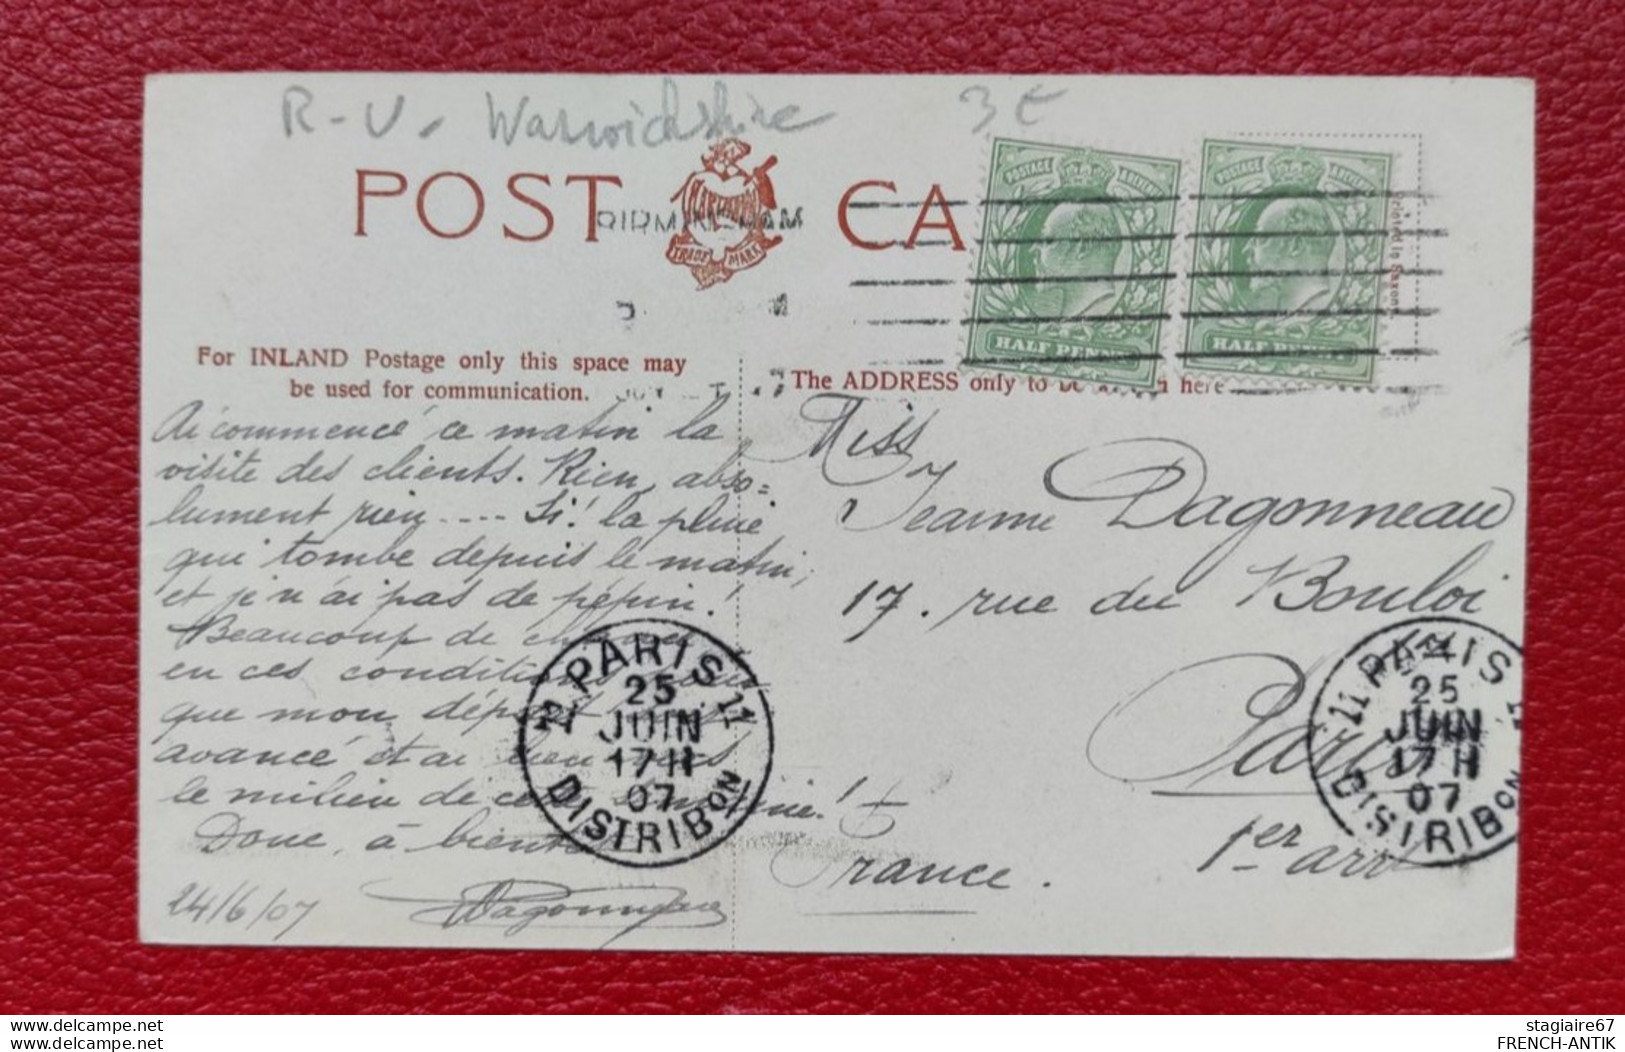 R-U. Warwickshire 3€
POST CA
BIRMINGHAM
TRADE MARK
POSTAGE
HALF PENNY
POSTAGE
HALF PENNY
Printed in Saxony
For INLAND Postage only this space may
be used for communication.
The ADDRESS only to be here
Ai commencé ce matin la
visite des clients. Rien, abso=
lument rien .... Si! la pluie
qui tombe depuis le matin,
et je n'ai pas de pépin!
Beaucoup de
en ces conditions
que mon départ
avancé et ai lieu vers
le milieu de cette semaine!
Donc, à bientôt
24/6/07
Dagonneau
Miss
Jeanne Dagonneau
17. rue du Bouloi
Paris
1er arrt
France.
PARIS 11
25
JUIN
17 H
07
DISTRIBON
PARIS
11
25
JUIN
17 H
07
DISTRIBON
www.delcampe.net
www.delcampe.net
stagiaire67
FRENCH-ANTIK